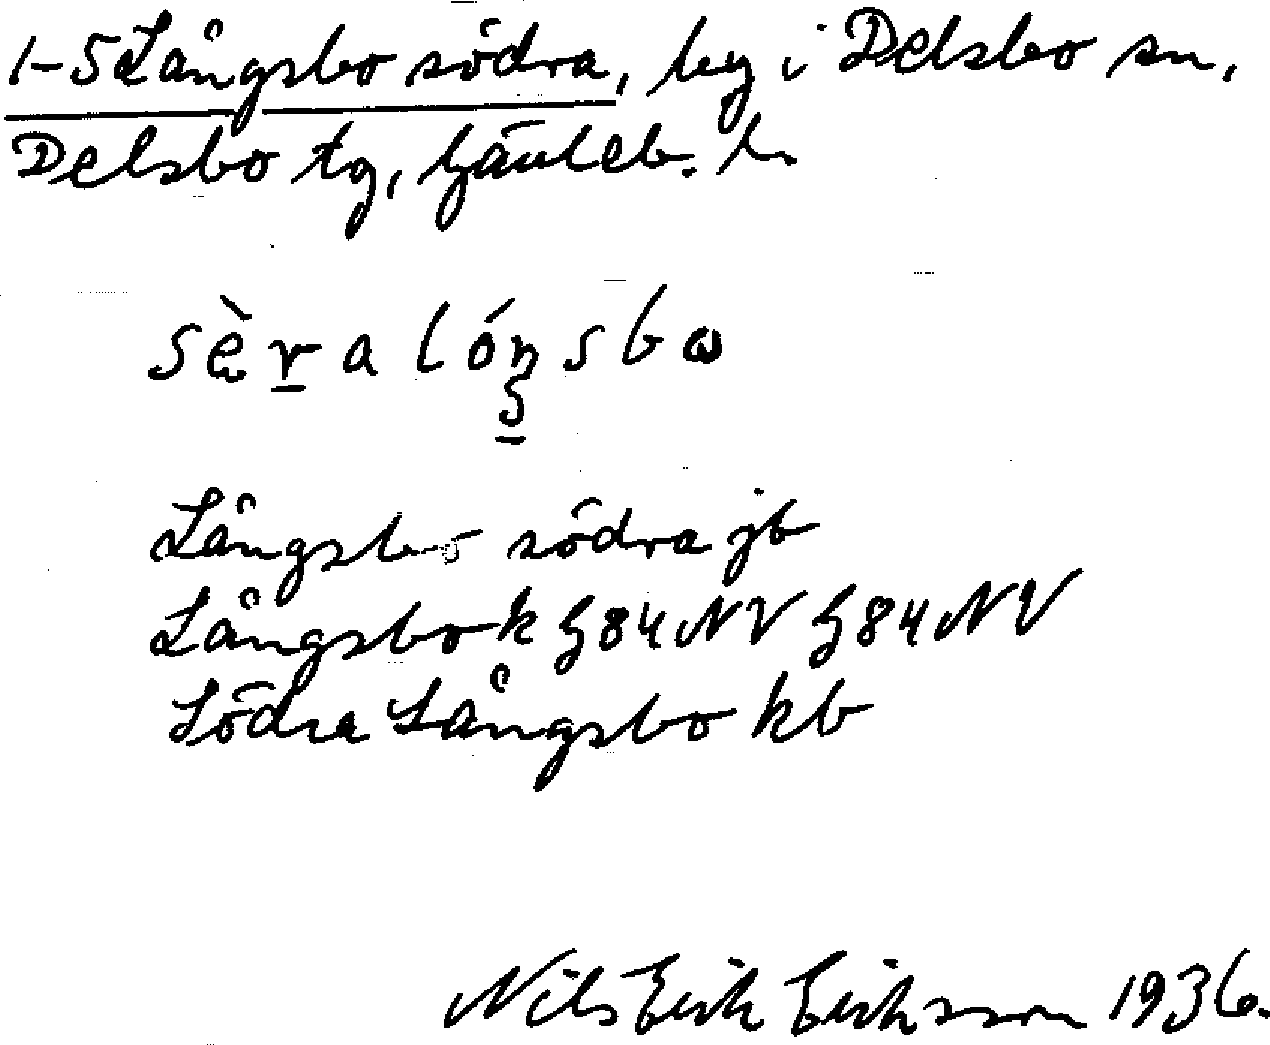 1-5 Långsbo södra, by i Delsbo sn,
Delsbo tg, Gävleb. l.
Långsbo södra jb
Långsbo k G84NV G84NV
Södra Långsbo kb
Nils Erik Eriksson 1936.